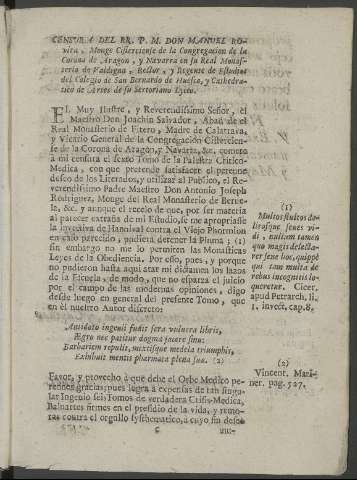 CENSURA DEL RR. P. M. DON MANUEL RO-
, Monge Cisterciense de la Congregacion de la
Corona de Aragon, y Navarra en su Real Monas-
terio de Valdigna, Rector, y Regente de Estudios
del Colegio de San Bernardo de Huesca, y Cathedra-
tico de Artes de su Sertoriano Lyceo.
EL Muy Ilustre, y Reverendissimo Señor, el
Maestro Don Joachin Salvador, Abad de el
Real Monasterio de Fitero, Madre de Calatrava,
y Vicario General de la Congregacion Cistercien-
se de la Corona de Aragon, y Navarra, &c. comete
à mi censura el sexto Tomo de la Palestra Critico-
Medica, con que pretende satisfacer el perenne
deseo de los Literados, y utilizar al Publico, el Re-
verendissimo Padre Maestro Don Antonio Joseph
Rodriguez, Monge del Real Monasterio de Berue-
la, &c. y aunque el recelo de que, por ser materia
al parecer extraña de mi Estudio, se me apropriasse
la invectiva de Hannibal contra el Viejo Phormion
en caso parecido, pudiera detener la Pluma; (1)
sin embargo no me lo permiten las Monasticas
Leyes de la Obediencia. Por esso, pues, y porque
no pudieron hasta aqui atar mi dictamen los lazos
de la Escuela, de modo, que no esparza el juicio
por el campo de las modernas opiniones, digo
desde luego en general del presente Tomo, que
en èl nuestro Autor discreto:
Antidoto ingenii fudit fera vulnera libris,
Ægro nec patitur dogma jacere sinu:
Barbariem repulit, mixtisque medela triumphis,
Exhibuit mentis pharmaca plena suæ. (2)
Favor, y provecho à que debe el Orbe Medico pe-
rennes gracias; pues logra à expensas de tan singu-
lar Ingenio seis Tomos de verdadera Crisis-Medica,
Baluartes firmes en el presidio de la vida, y remo-
ras contra el orgullo systhematico, à cuyo fin deso-
(1)
Multos stultos de-
lirosque senes vi-
di, nullum tamen
quo magis delecta-
rer sene hoc, quippè
qui tam multa de
rebus incognitis lo-
queretur. Cicer.
apud Petrarch. li.
1. invect. cap. 8.
(2)
Vincent. Mari-
ner. pag. 527.